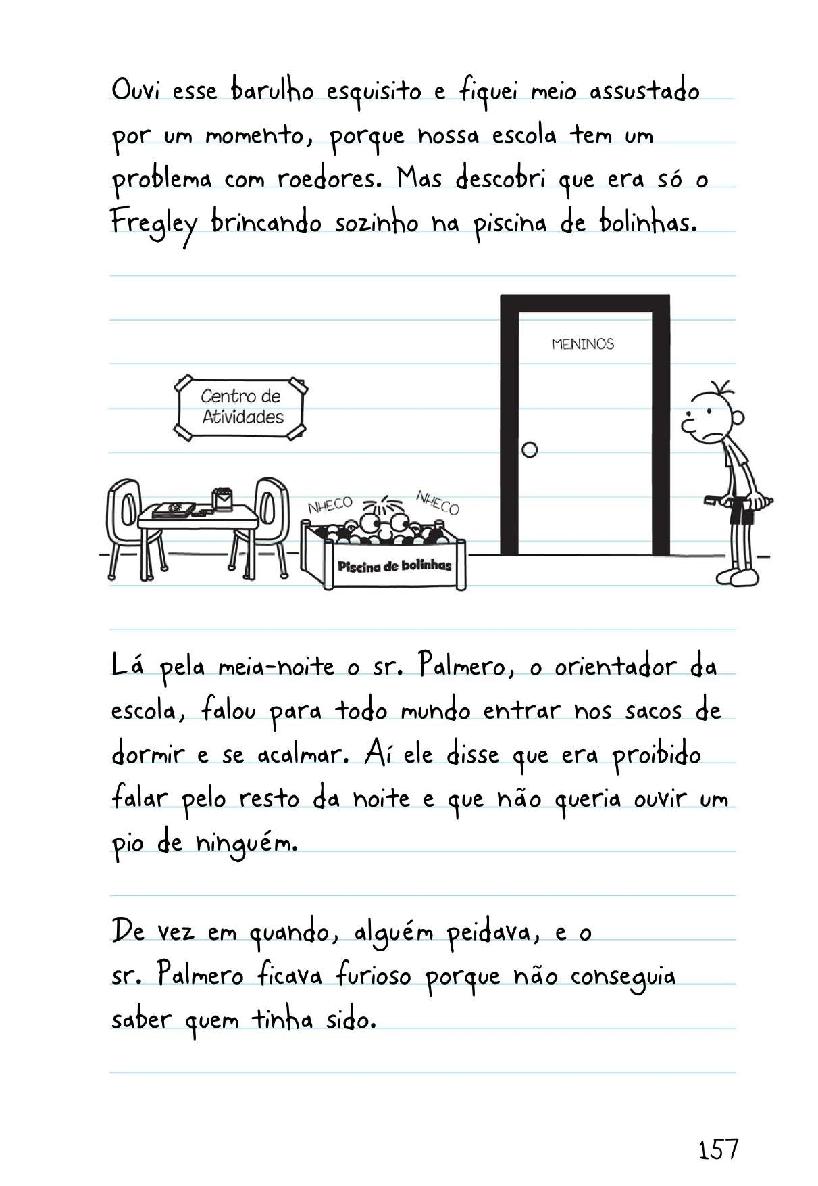 Ouvi esse barulho esquisito e fiquei meio assustado
por um momento, porque nossa escola tem um
problema com roedores. Mas descobri que era só o
Fregley brincando sozinho na piscina de bolinhas.
MENINOS
Centro de
Atividades
NHECO
NHECO
Piscina de bolinhas
Lá pela meia-noite o sr. Palmero, o orientador da
escola, falou para todo mundo entrar nos sacos de
dormir e se acalmar. Aí ele disse que era proibido
falar pelo resto da noite e que não queria ouvir um
pio de ninguém.
De vez em quando, alguém peidava, e o
sr. Palmero ficava furioso porque não conseguia
saber quem tinha sido.
157